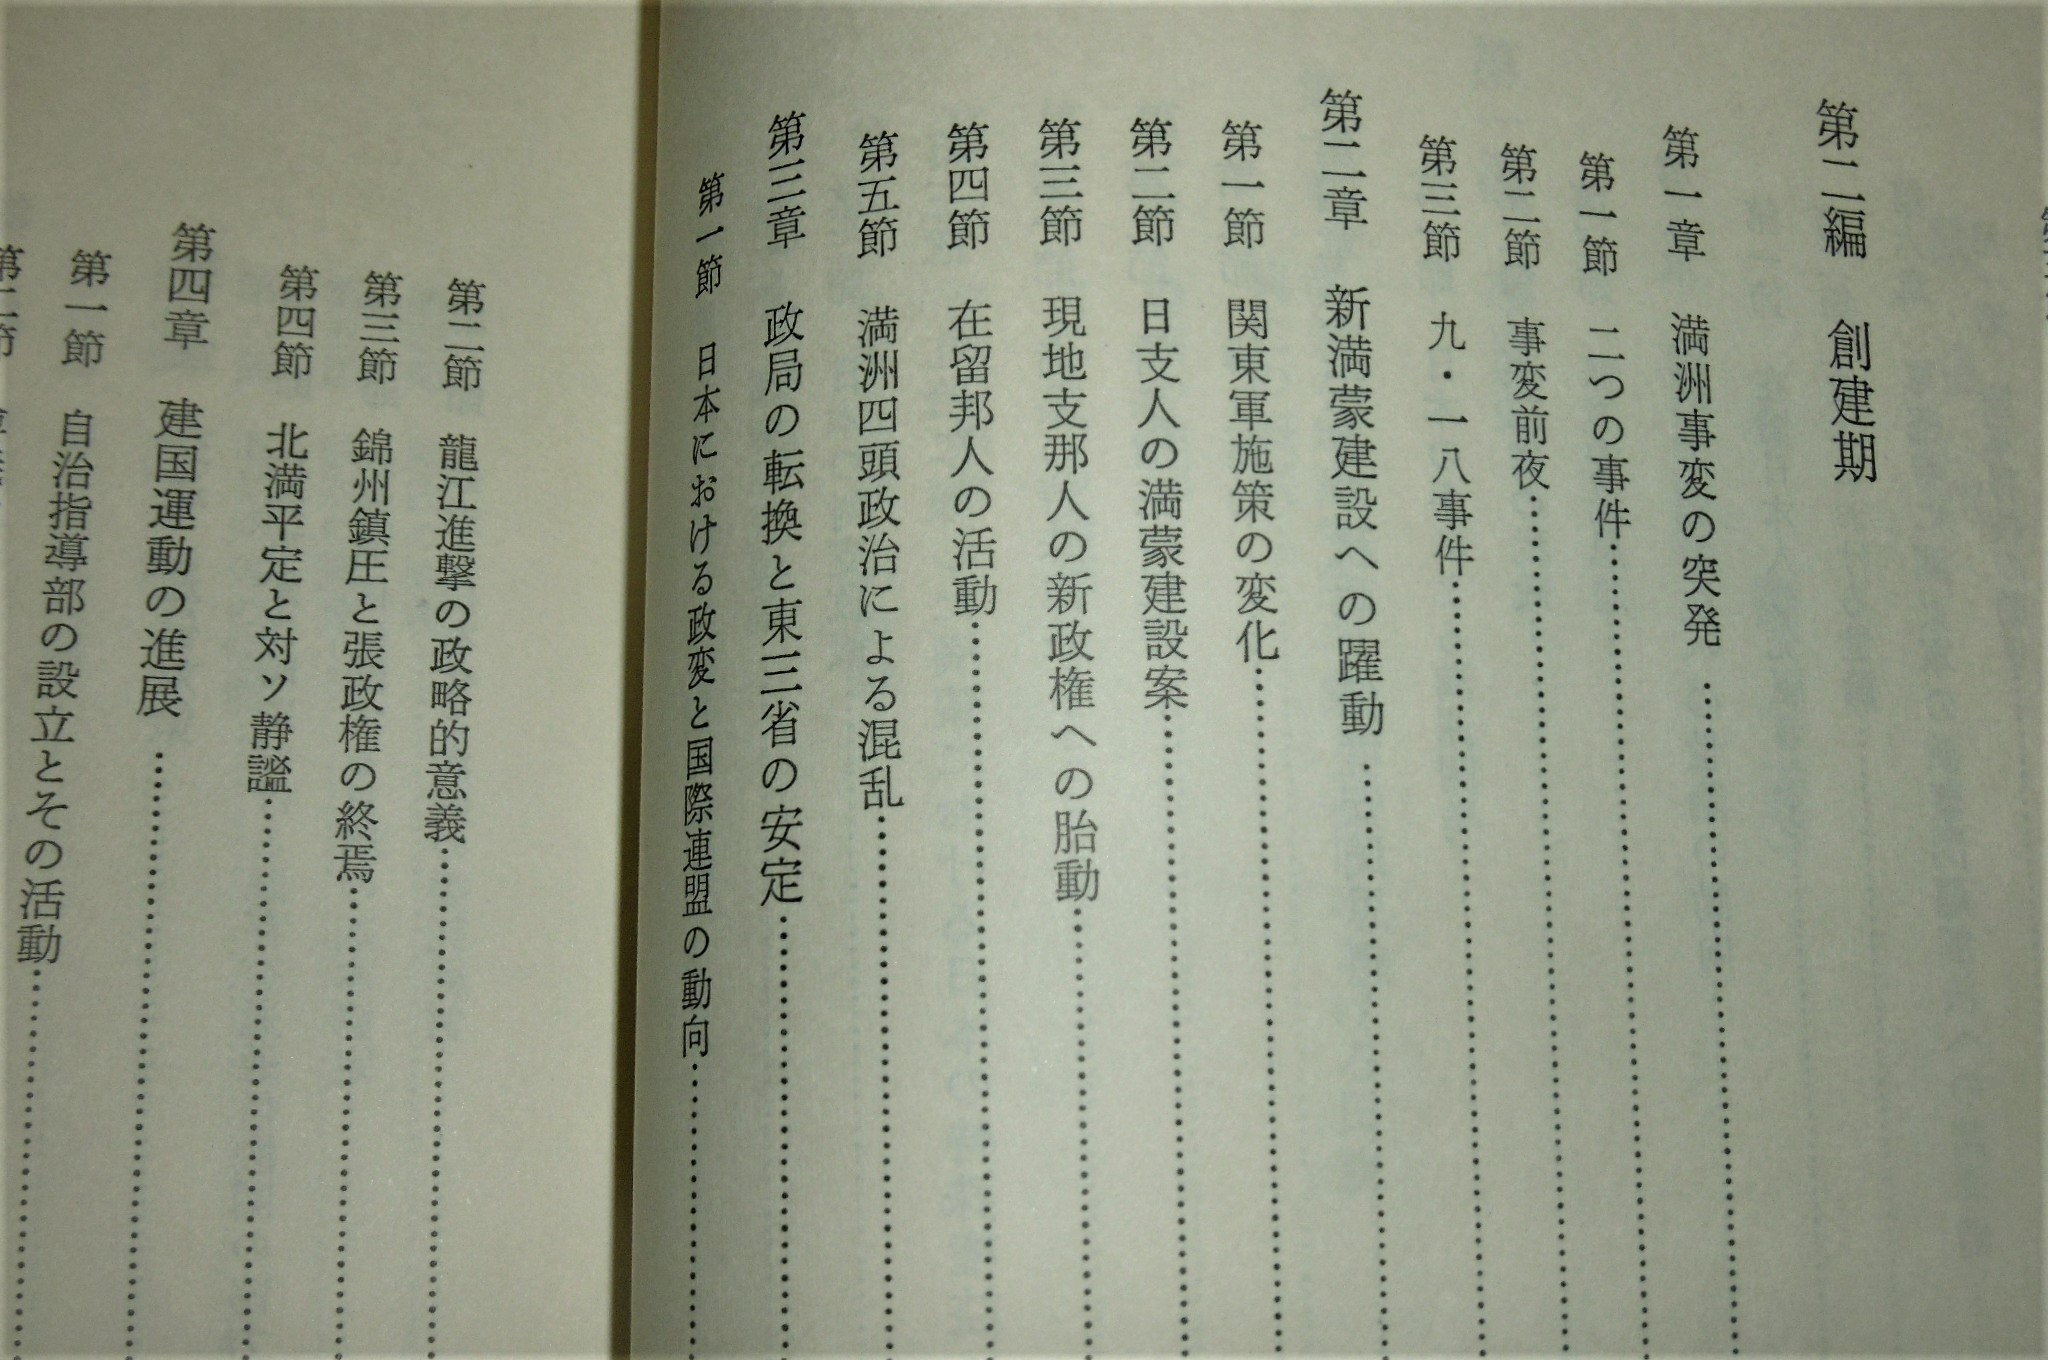 第二編　創建期
第一章　満洲事変の突発
第一節　二つの事件
第二節　事変前夜
第三節　九・一八事件
第二章　新満蒙建設への躍動
第一節　関東軍施策の変化
第二節　日支人の満蒙建設案
第三節　現地支那人の新政権への胎動
第四節　在留邦人の活動
第五節　満洲四頭政治による混乱
第三章　政局の転換と東三省の安定
第一節　日本における政変と国際連盟の動向
第二節　龍江進撃の政略的意義
第三節　錦州鎮圧と張政権の終焉
第四節　北満平定と対ソ静謐
第四章　建国運動の進展
第一節　自治指導部の設立とその活動
第二節